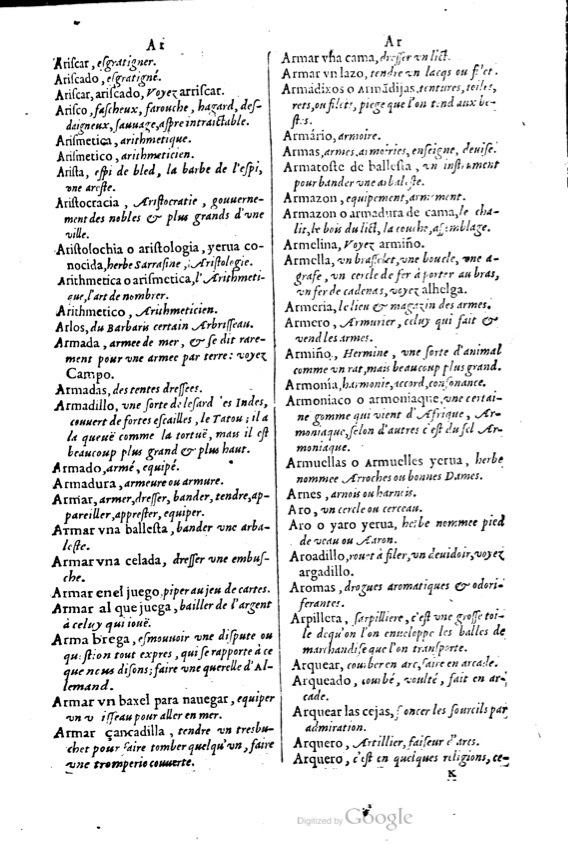 Ar
Ariscar, esgratigner.
Ariscado, esgratigné.
Ariscar, ariscado, Voyez arriscar.
Arisco, fascheux, farouche, hagard, des-
daigneux, sauuage, aspre intraictable.
Arismetica, arithmetique.
Arismetico, arithmeticien.
Arista, espi de bled, la barbe de l'espi,
vne areste.
Aristocracia, Aristocratie, gouuerne-
ment des nobles & plus grands d'vne
ville.
Aristolochia o aristologia, yerua co-
nocida, herbe Sarrasine, Aristologie.
Arithmetica o arismetica, l'Arithmeti-
que, l'art de nombrer.
Arithmetico, Arithmeticien.
Arlos, du Barbaris certain Arbrisseau.
Armada, armee de mer, & se dit rare-
ment pour vne armee par terre: voyez
Campo.
Armadas, des tentes dressees.
Armadillo, vne sorte de lesard es Indes,
couuert de fortes escailles, le Tatou; il a
la queuë comme la tortuë, mais il est
beaucoup plus grand & plus haut.
Armado, armé, equipé.
Armadura, armeure ou armure.
Armar, armer, dresser, bander, tendre, ap-
pareiller, apprester, equiper.
Armar vna ballesta, bander vne arba-
leste.
Armar vna celada, dresser vne embus-
che.
Armar en el juego, piper au jeu de cartes.
Armar al que juega, bailler de l'argent
à celuy qui iouë.
Arma brega, esmouuoir vne dispute ou
question tout expres, qui se rapporte à ce
que nous disons; faire vne querelle d'Al-
lemand.
Armar vn baxel para nauegar, equiper
vn v isseau pour aller en mer.
Armar çancadilla, tendre vn tresbu-
chet pour faire tomber quelqu'vn, faire
vne tromperie couuerte.
Ar
Armar vña cama, dresser vn lict.
Armar vn lazo, tendre vn lacqs ou filet.
Armadixos o armadijas, tentures, toiles,
rets, ou filets, piege que l'on tend aux be-
stes.
Armário, armoire.
Armas, armes, armoiries, enseigne, deuise.
Armatoste de ballesta, vn instrument
pour bander vne arbaleste.
Armazon, equipement, armement.
Armazon o armadura de cama, le cha-
lit, le bois du lict, la couche, assemblage.
Armelina, Voyez armiño.
Armella, vn brasselet, vne boucle, vne a-
grafe, vn cercle de fer à porter au bras,
vn fer de cadenas, voyez alhelga.
Armeria, le lieu & magazin des armes.
Armero, Armurier, celuy qui fait &
vend les armes.
Armiño, Hermine, vne sorte d'animal
comme vn rat, mais beaucoup plus grand.
Armonia, harmonie, accord, consonance.
Armoniaco o armoniaque, vne certai-
ne gomme qui vient d'Afrique, Ar-
moniaque, selon d'autres c'est du sel Ar-
moniaque.
Armuellas o Armuelles yerua, herbe
nommee Arroches ou bonnes Dames.
Arnes, arnois ou harnois.
Aro, vn cercle ou cerceau.
Aro o yaro yerua, herbe nommee pied
de veau ou Aaron.
Aroadillo, rouet à filer, vn deuidoir, voyez
argadillo.
Aromas, drogues aromatiques & odori-
ferantes.
Arpillera, sarpilliere, c'est vne grosse toi-
le dequ'on l'on enueloppe les balles de
marchandise que l'on transporte.
Arquear, courber en arc, faire en arcade.
Arqueado, courbé, voulté, fait en ar-
cade.
Arquear las cejas, foncer les sourcils par
admiration.
Arquero, Artillier, faiseur d'arcs.
Arquero, c'est en quelques religions, ce-
K
Digitized by Google